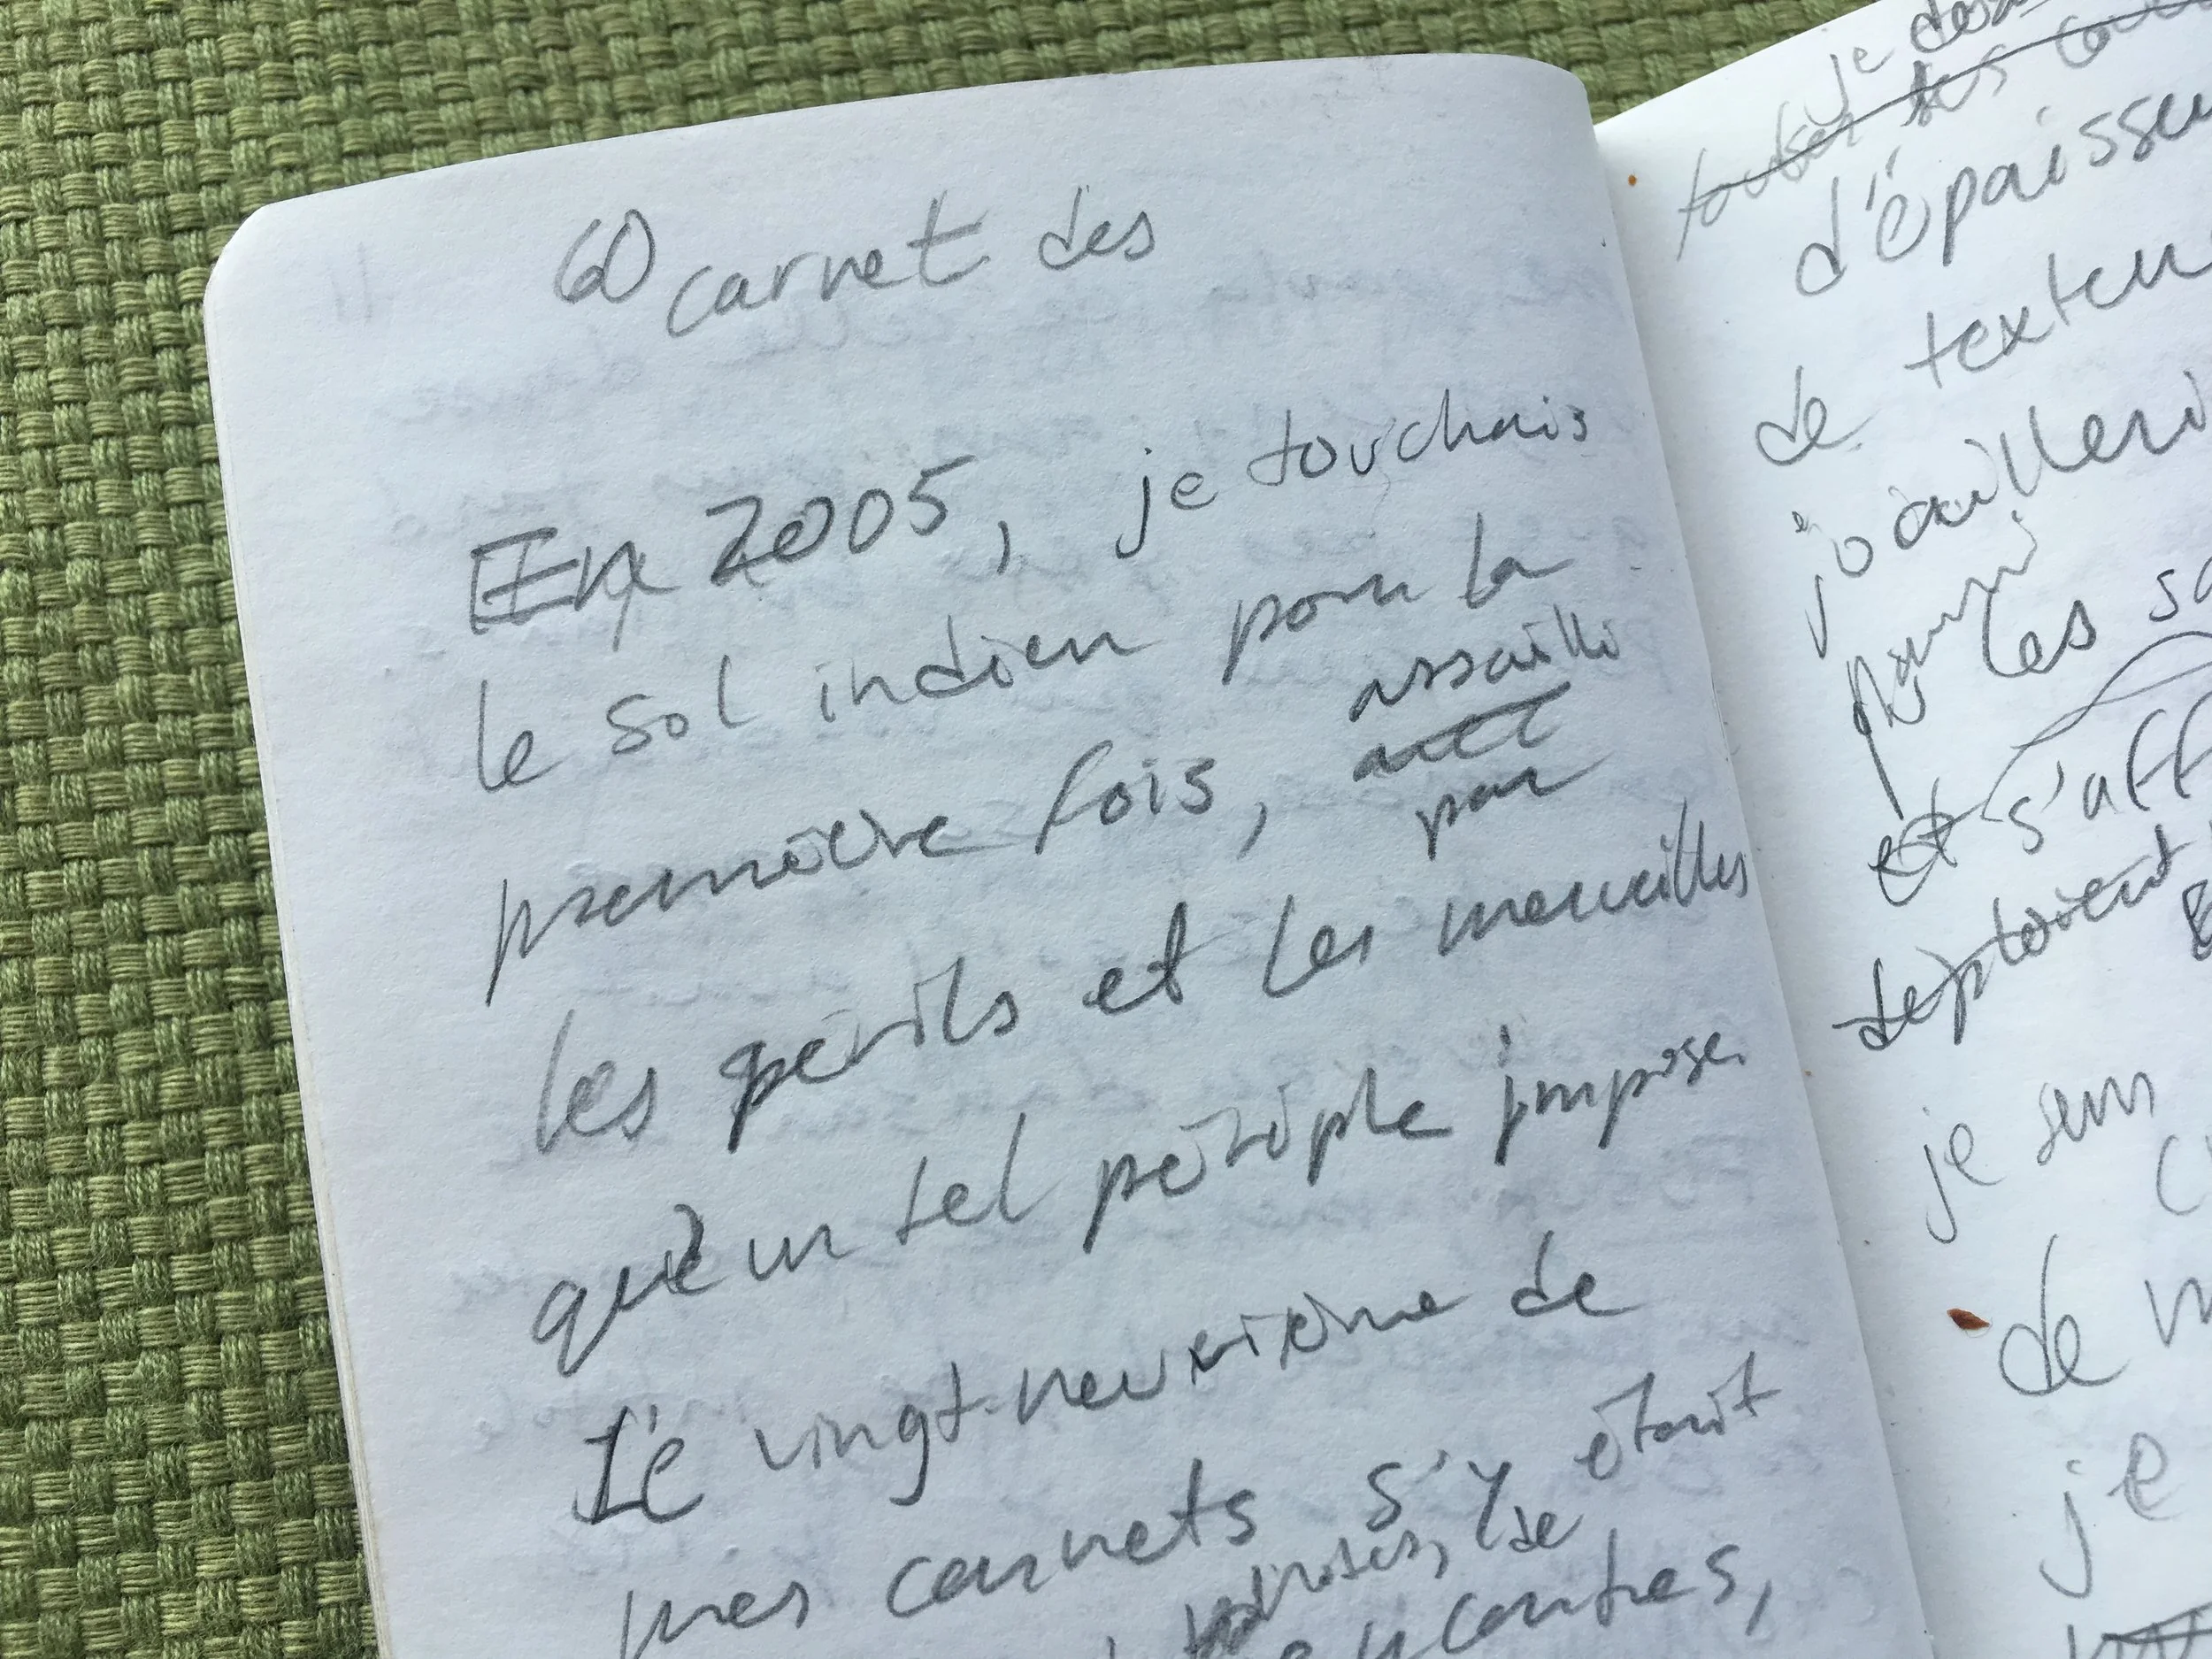 60 carnet des
En 2005, je touchais
le sol indien pour la
première fois, assailli
avec
par
les périls et les merveilles
qu'un tel périple impose.
Le vingt-neuvième de
mes carnets s'y était
notes, de
rencontres,
je
toutes les
d'épaisseu
de textu
joailleri
parmi les sa
et s'aff
déploient
je suis
de m
je